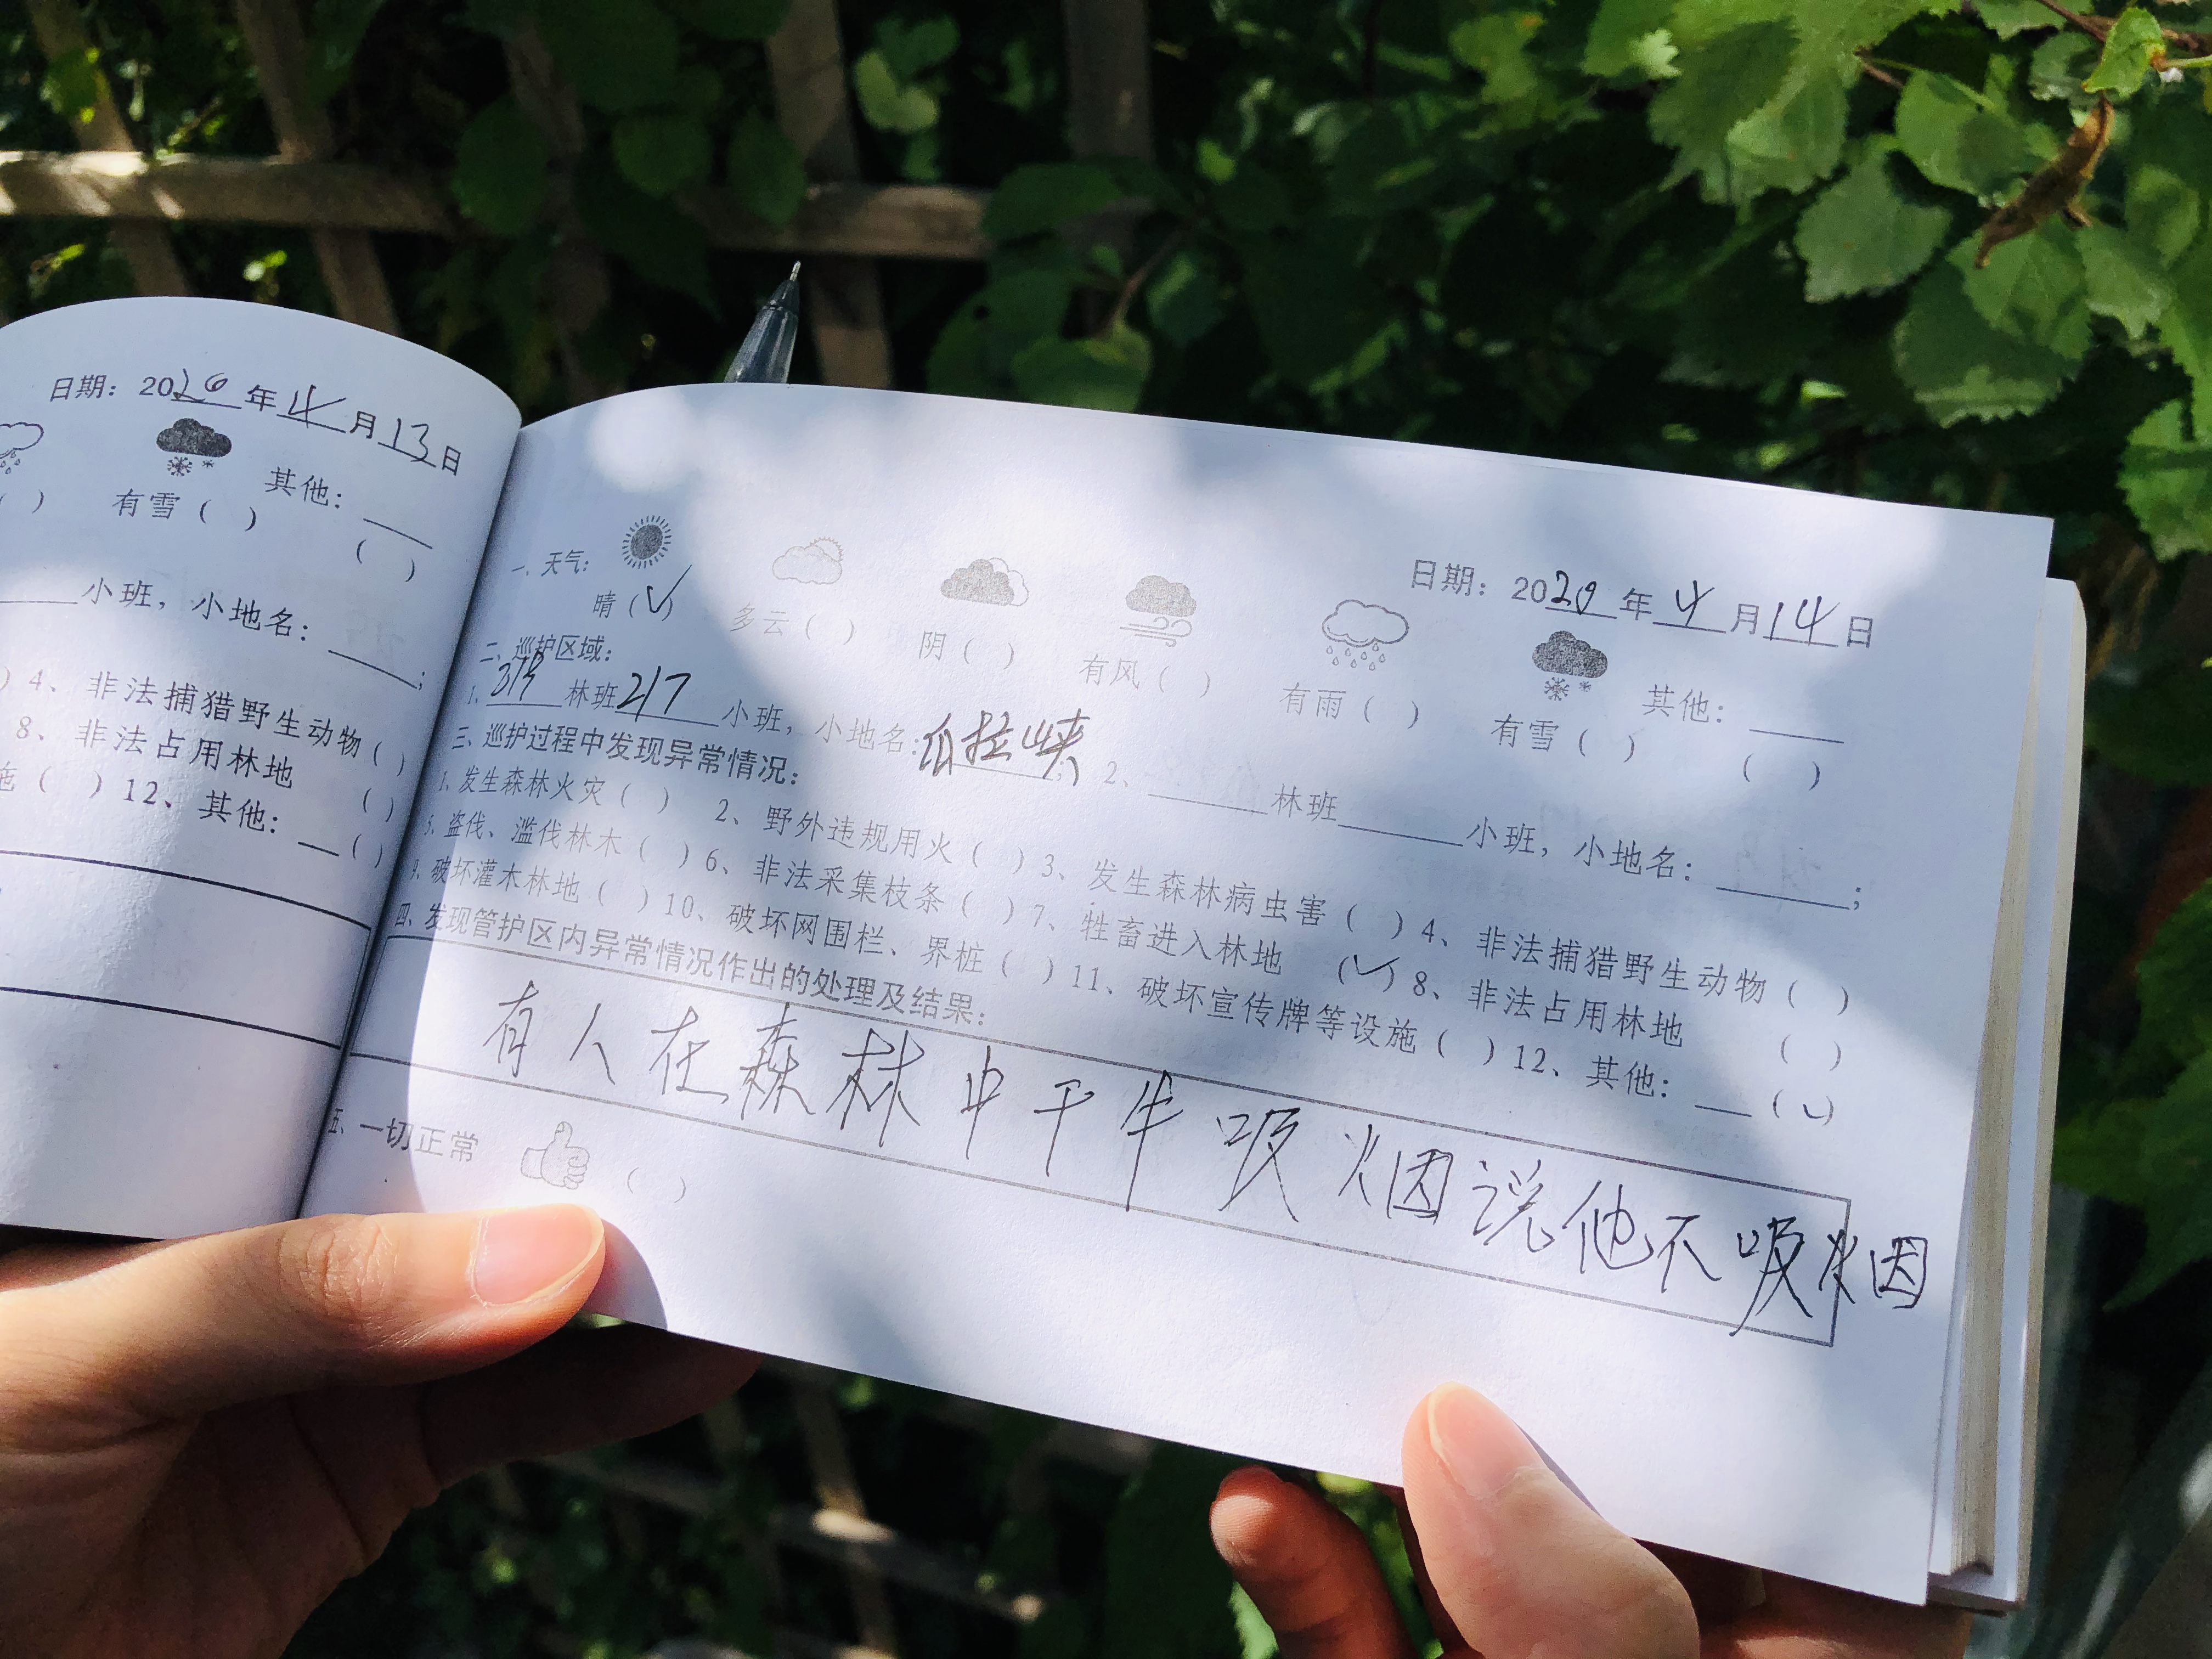 日期：2020年4月13日
有雪（ ） 其他：
（ ）
小班，小地名：____；
）4、非法捕猎野生动物（ ）
8、非法占用林地（ ）
施（ ）12、其他：__（ ）
日期：2020年4月14日
一、天气：
晴（✓） 多云（ ） 阴（ ） 有风（ ） 有雨（ ） 有雪（ ） 其他：____（ ）
二、巡护区域：
1、319林班217小班，小地名：瓜拉峡；2、____林班____小班，小地名：____；
三、巡护过程中发现异常情况：
1、发生森林火灾（ ） 2、野外违规用火（ ）3、发生森林病虫害（ ）4、非法捕猎野生动物（ ）
5、盗伐、滥伐林木（ ）6、非法采集枝条（ ）7、牲畜进入林地（✓）8、非法占用林地（ ）
9、破坏灌木林地（ ）10、破坏网围栏、界桩（ ）11、破坏宣传牌等设施（ ）12、其他：__（✓）
四、发现管护区内异常情况作出的处理及结果：
有人在森林中干牛吸烟说他不吸烟
五、一切正常（ ）